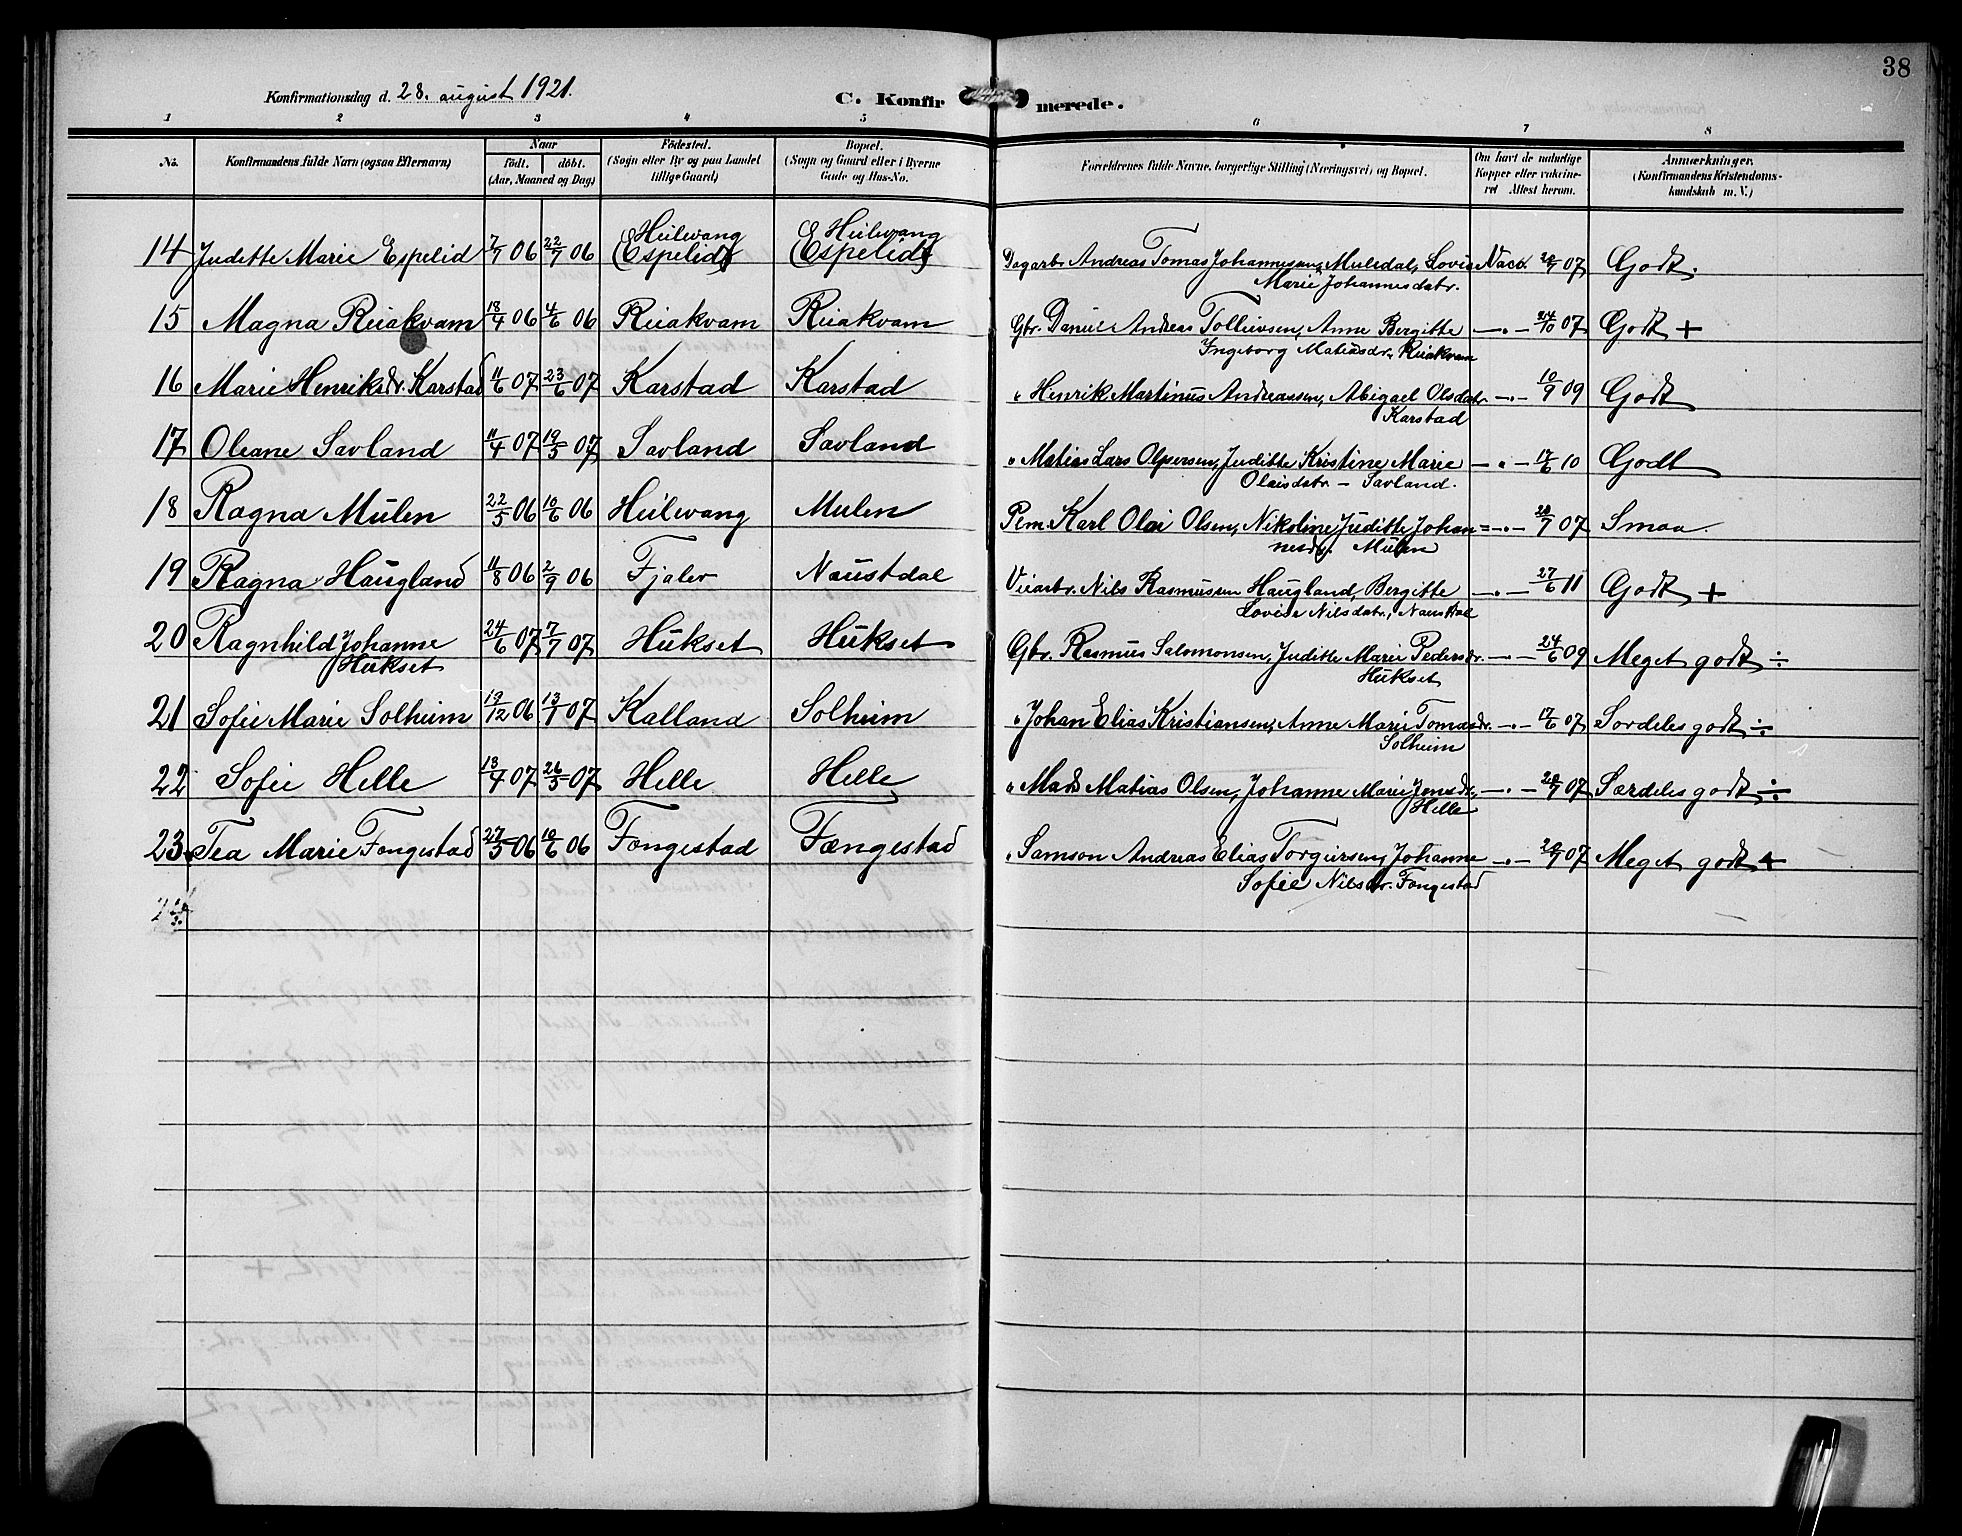 38
Konfirmationsdag d. 28. august 1921.
C. Konfirmerede.
1 2 3 4 5 6 7 8
No. Konfirmandens fulde Navn (ogsaa Efternavn) Naar födt. döbt. (Aar, Maaned og Dag) Födested. (Sogn eller By og paa Landet tillige Gaard) Bopæl. (Sogn og Gaard eller i Byerne Gade og Hus-No. Forældrenes fulde Navne, borgerlige Stilling (Næringsvei) og Bopæl. Om havt de naturlige Kopper eller vakcineret Attest herom. Anmærkninger. (Konfirmandens Kristendomskundskab m. V.)
14 Juditte Marie Espelid 7/7 06 22/7 06 Heilevang (Espelid) Heilevang (Espelid) Dagarbr. Andreas Tomas Johannesen, Mulsdal, Lovise Vacc. 07 Godt.
Marie Johannesdatr.
15 Magna Reiakvam 18/4 06 4/6 06 Reiakvam Reiakvam Gbr. Daniel Andreas Tollievsen, Anne Bergitte —"— 24/10 07 Godt +
Ingeborg Matiasdr. Reiakvam
16 Marie Henriksdr. Karstad 11/6 07 23/6 07 Karstad Karstad " Henrik Martinus Andreassen, Abigael Olsdatr. —"— 10/9 09 Godt
Karstad
17 Oleane Savland 11/4 07 19/5 07 Savland Savland " Matias Lars Olpersen, Juditte Kristine Marie —"— 17/6 10 Godt
Olaisdatr - Savland.
18 Ragna Mulen 22/5 06 10/6 06 Heilevang Mulen Pem. Karl Olai Olsen, Nikoline Juditte Johan= —"— 07 Smaa.
nesdr. Mulen
19 Ragna Haugland 11/8 06 2/9 06 Fjaler Naustdal Veiarbr. Nils Rasmussen Haugland, Bergitte —"— 27/6 11 Godt +
Lovise Nilsdatr., Naustdal
20 Ragnhild Johanne 24/6 07 7/7 07 Hukset Hukset Gbr. Rasmus Salomonsen, Juditte Marie Pedersdr. —"— 24/6 09 Meget godt ÷
Hukset Hukset
21 Sofie Marie Solheim 19/12 06 13/1 07 Kalland Solheim " Johan Elias Kristiansen, Anne Marie Tomasdr. —"— 17/6 07 Særdeles godt ÷
Solheim
22 Sofie Helle 13/4 07 26/5 07 Helle Helle " Mads Matias Olsen, Johanne Marie Jensdr. —"— 07 Særdeles godt ÷
Helle
23 Tea Marie Fongestad 27/5 06 10/6 06 Fongestad Fængestad " Samson Andreas Elias Torgersen, Johanne —"— 07 Meget godt +
Sofie Nilsdr. Fongestad